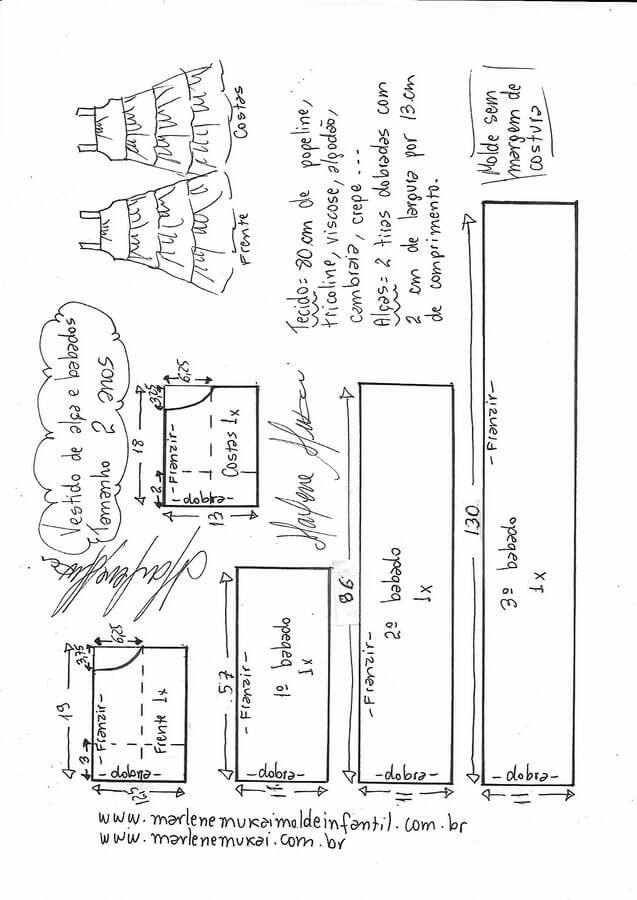 Vestido de alça e babados
Tamanho 2 anos
Costas
Frente
Tecido= 80cm de popeline,
tricoline, viscose, algodão,
cambraia, crepe ---
Alças= 2 tiras dobradas com
2 cm de largura por 13 cm
de comprimento.
Molde sem
margem de
costura
18
3,75
6,25
2
-Franzir-
Costas 1x
-dobra-
13
19
3,75
6,25
3
-Franzir-
Frente 1x
-dobra-
12,5
57
-Franzir-
1º babado
1x
-dobra-
11
86
-Franzir-
2º babado
1x
-dobra-
11
130
-Franzir-
3º babado
1x
-dobra-
11
Marlene Mukai
Marlene Mukai
www.marlenemukaimoldeinfantil.com.br
www.marlenemukai.com.br